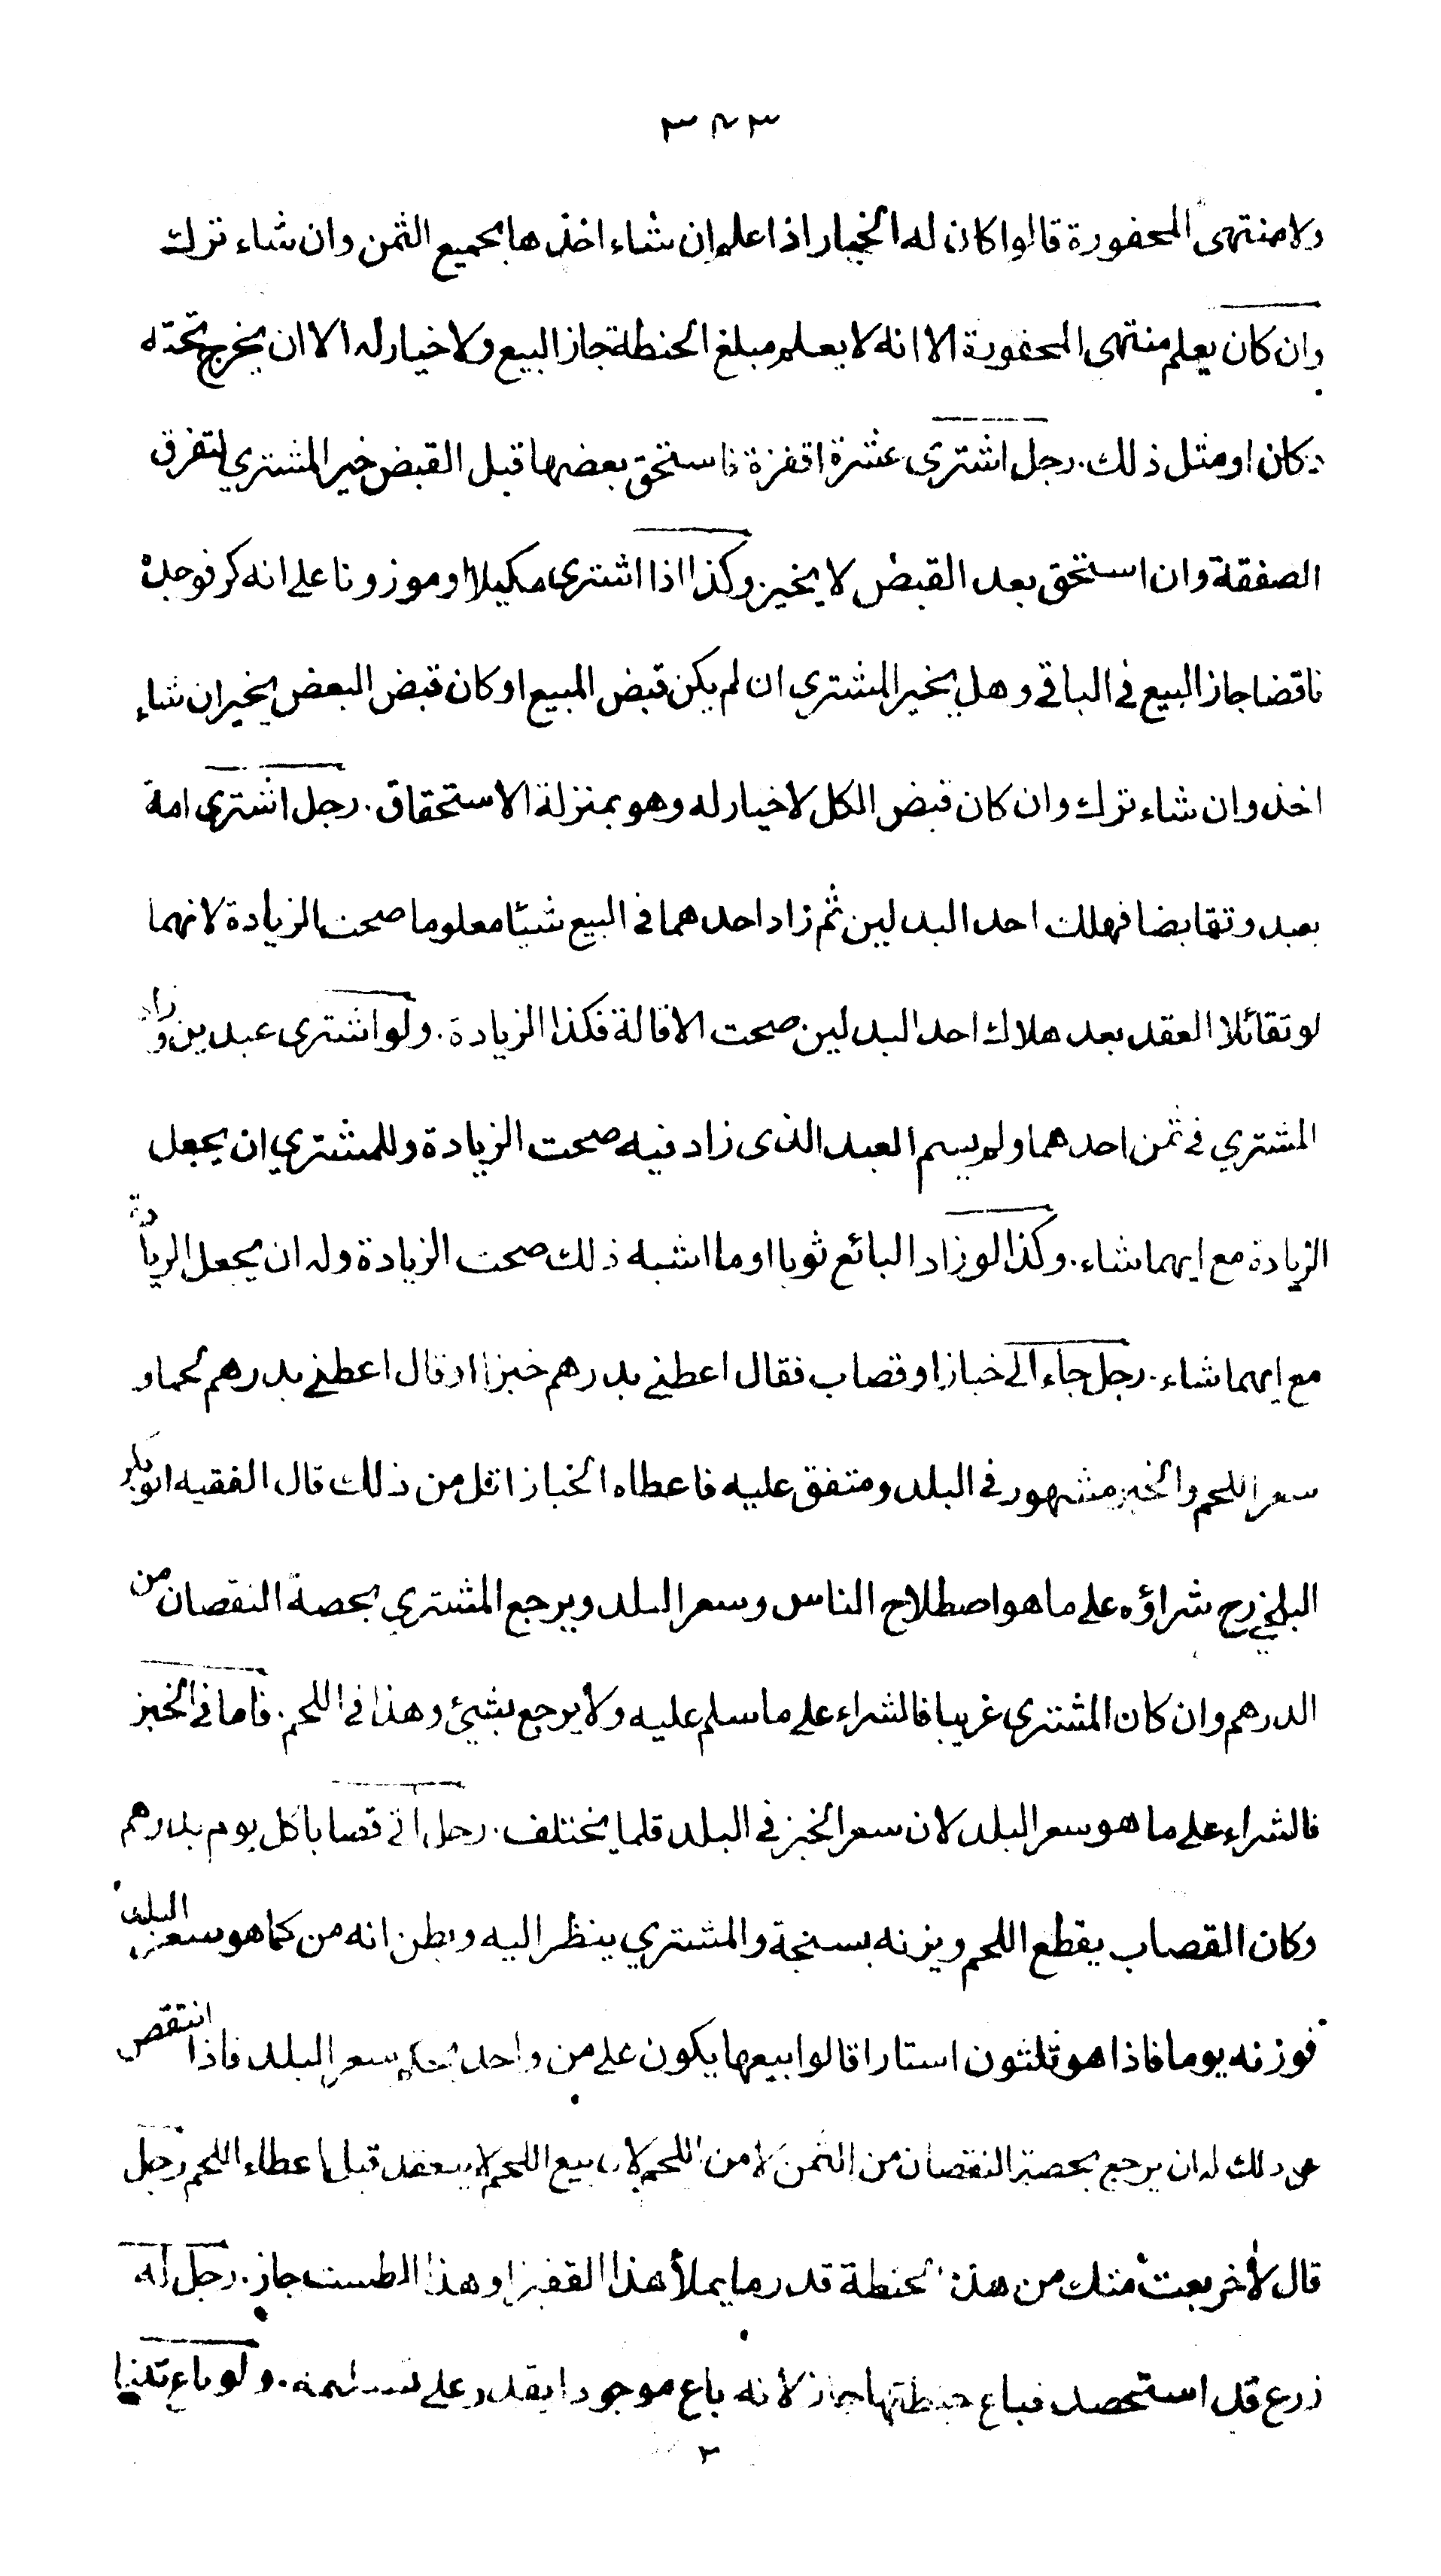 ٣٨٣
ولا منتهى المحفورة قالوا كان له الخيار اذا علم ان شاء اخذها بجميع الثمن وان شاء ترك
وان كان يعلم منتهى المحفورة الا انه لا يعلم مبلغ الحنطة جاز البيع ولا خيار له الا ان يخرج تحته
دكان او مثل ذلك. رجل اشترى عشرة اقفزة فاستحق بعضها قبل القبض خير المشتري لتفرق
الصفقة وان استحق بعد القبض لا يخير وكذا اذا اشترى مكيلا او موزونا على انه كر فوجده
ناقضا جاز البيع في الباقي وهل يخير المشتري ان لم يكن قبض المبيع او كان قبض البعض يخير ان شاء
اخذ وان شاء ترك وان كان قبض الكل لا خيار له وهو بمنزلة الاستحقاق. رجل اشترى امة
بعبد وتقابضا فهلك احد البدلين ثم زاد احدهما في البيع شيئا معلوما صحت الزيادة لانهما
لو تقائلا العقد بعد هلاك احد البدلين صحت الاقالة فكذا الزيادة. ولو اشترى عبدين وزاد
المشتري في ثمن احدهما ولم يسم العبد الذى زاد فيه صحت الزيادة وللمشتري ان يجعل
الزيادة مع ايهما شاء. وكذا لو زاد البائع ثوبا او ما اشبه ذلك صحت الزيادة وله ان يجعل الزيادة
مع ايهما شاء. رجل جاء الى خباز او قصاب فقال اعطني بدرهم خبزا او قال اعطني بدرهم لحما و
سعر اللحم والخبز مشهور في البلد ومتفق عليه فاعطاه الخباز اقل من ذلك قال الفقيه ابو بكر
البلخي رح شراؤه على ما هو اصطلاح الناس وسعر البلد ويرجع المشتري بحصة النقصان من
الدرهم وان كان المشترى غريبا فالشراء على ما سلم عليه ولا يرجع بشيئ وهذا في اللحم. فاما في الخبز
فالشراء على ما هو سعر البلد لان سعر الخبز في البلد قلما يختلف. رجل اتى قصابا كل يوم بدرهم
وكان القصاب يقطع اللحم ويزنه بسنجة والمشتري ينظر اليه ويظن انه من كما هو سعر البلد
فوزنه يوما فاذا هو ثلثون استارا قالوا بيعها يكون على من واحد بحكم سعر البلد فاذا انتقص
عن ذلك له ان يرجع بحصة النقصان من الثمن لا من اللحم لان بيع اللحم لا ينعقد قبل اعطاء اللحم رجل
قال لأخر بعت منك من هذه الحنطة قدر ما يملأ هذا القفيز او هذا الطست جاز. رجل له
زرع قد استحصد فباع حنطتها جاز لانه باع موجودا يقدر على تسليمه. ولو باع تبنها
٣